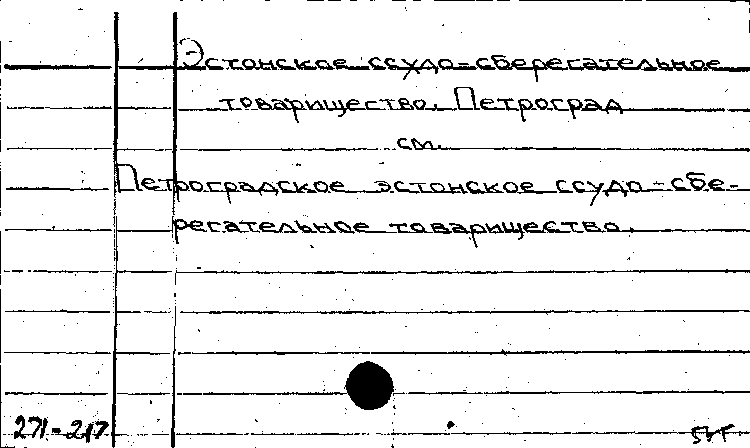 Эстонское ссудо-сберегательное
товарищество. Петроград
см.
Петроградское эстонское ссудо-сбе-
регательное товарищество.
271-217